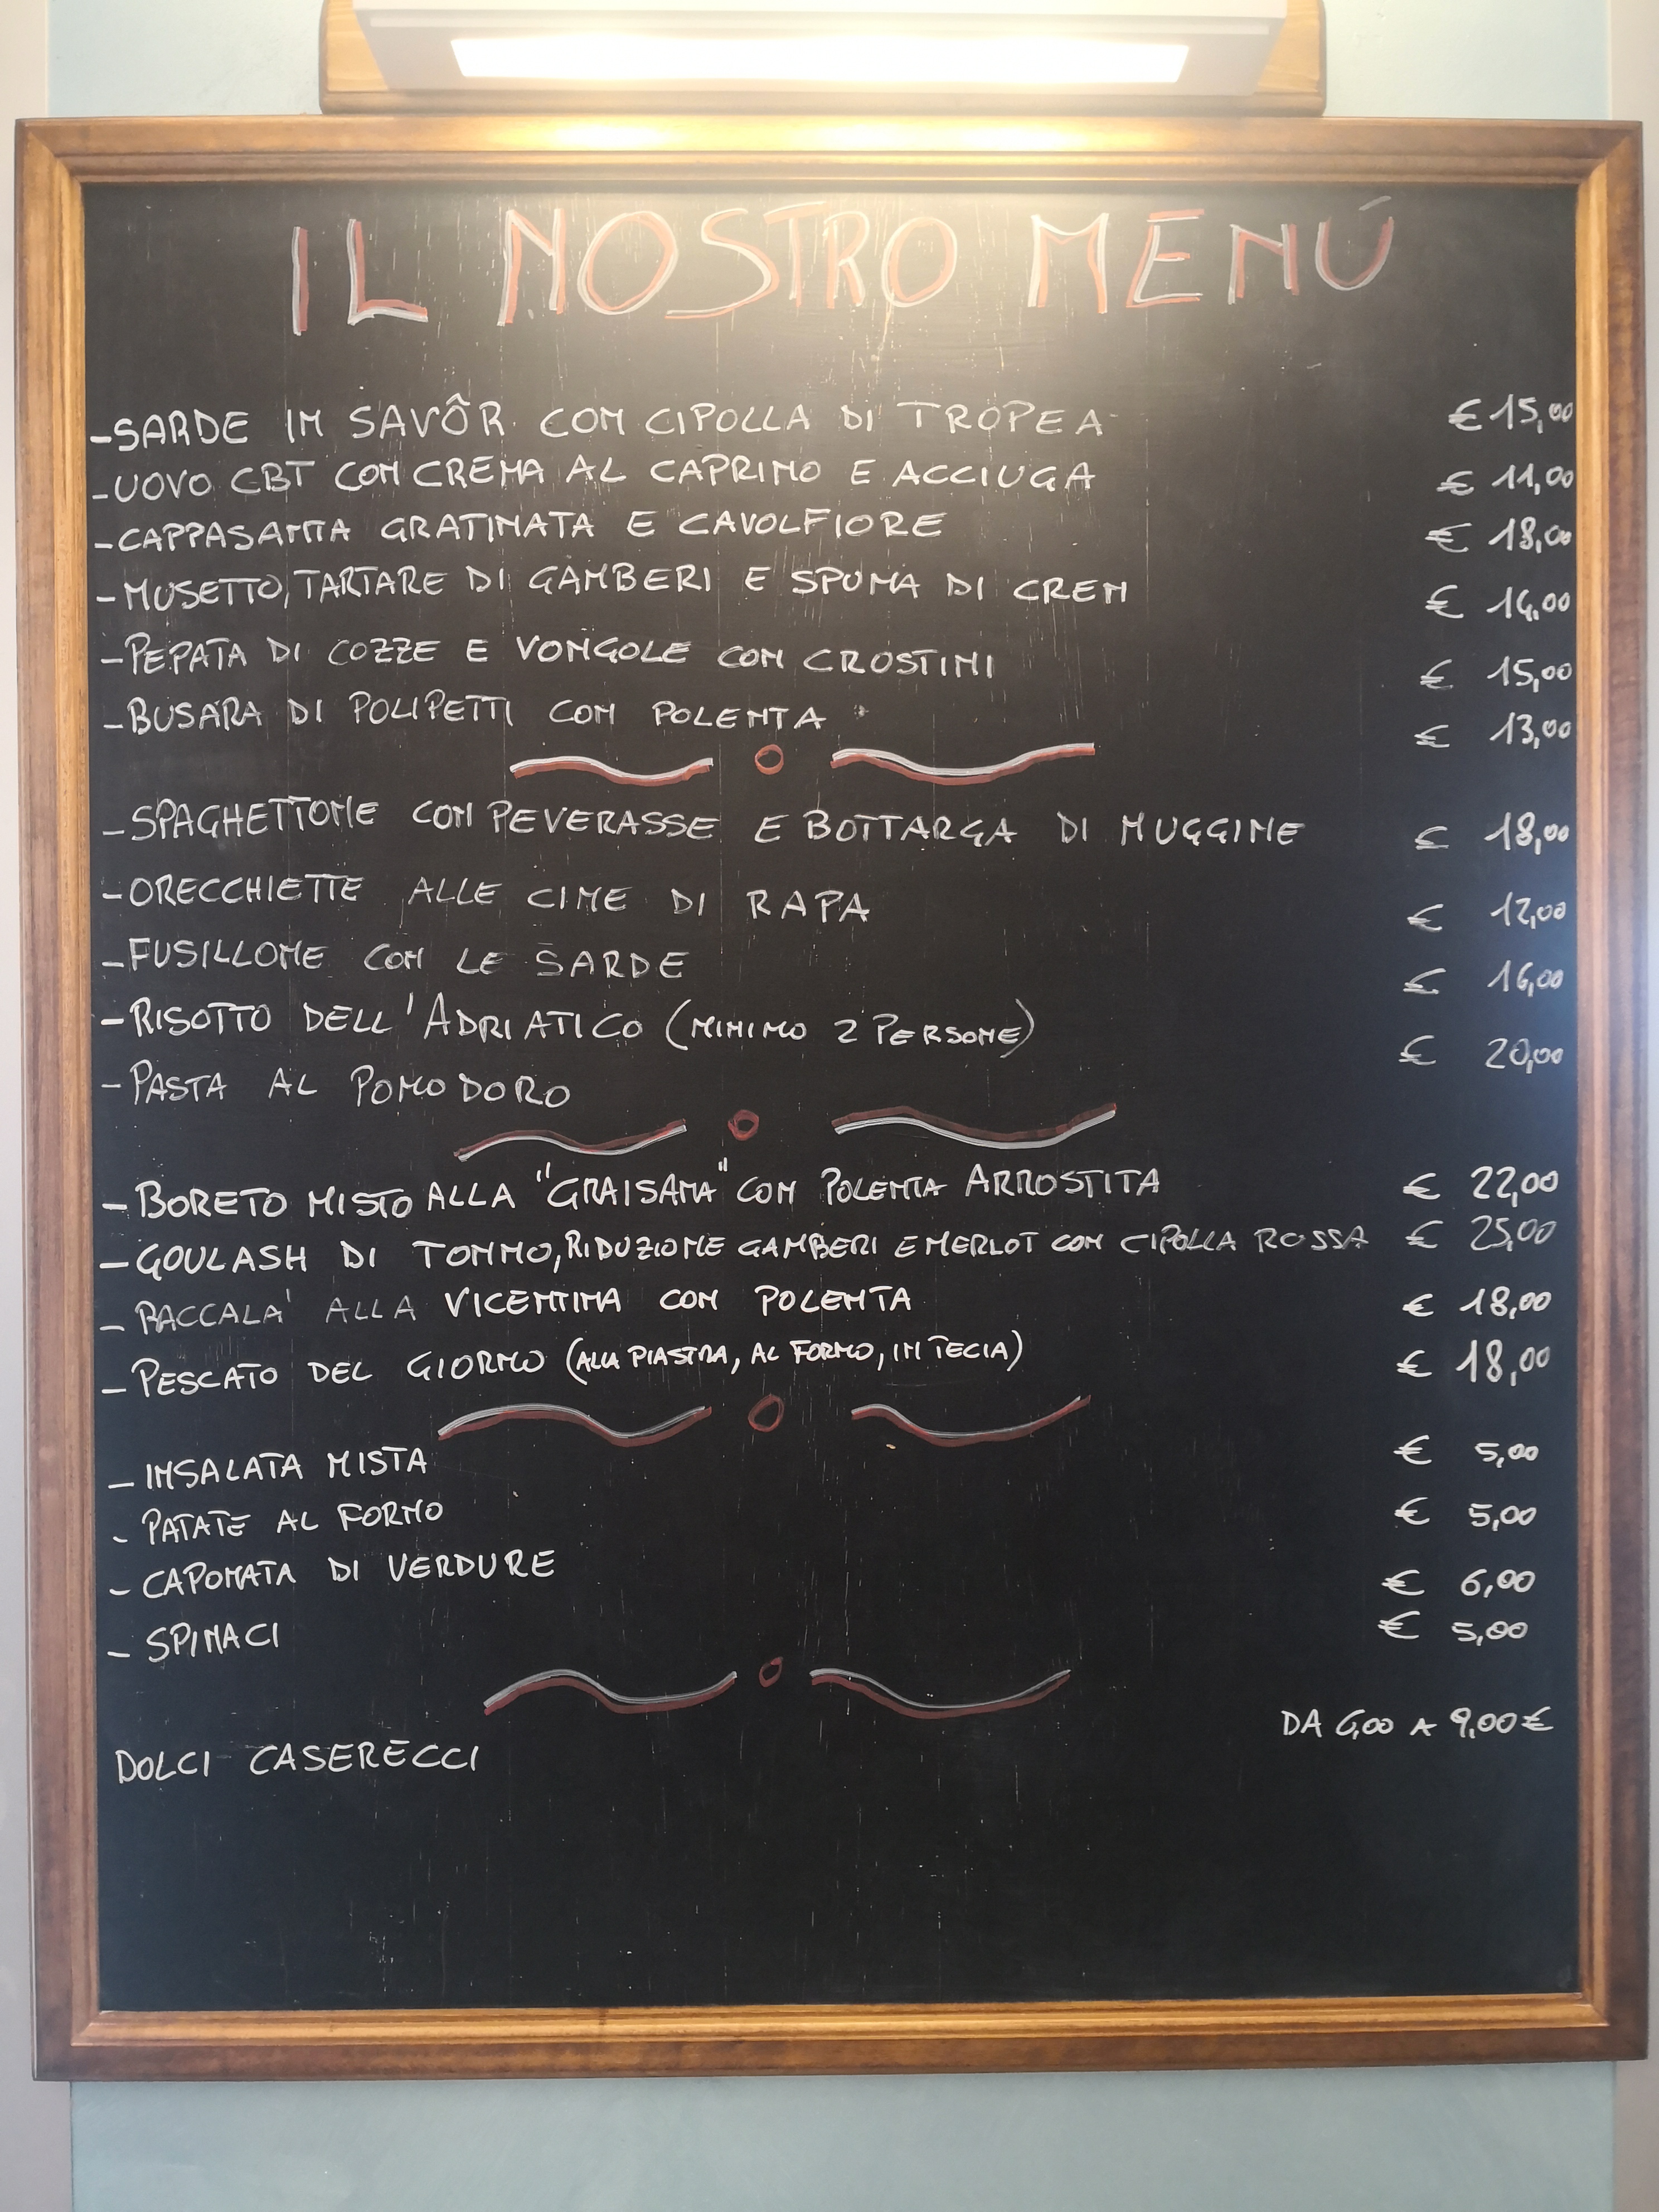 IL NOSTRO MENÚ
-SARDE IN SAVÔR CON CIPOLLA DI TROPEA € 15,00
-UOVO CBT CON CREMA AL CAPRINO E ACCIUGA € 11,00
-CAPPASANTA GRATINATA E CAVOLFIORE € 18,00
-MUSETTO, TARTARE DI GAMBERI E SPUMA DI CREN € 14,00
-PEPATA DI COZZE E VONGOLE CON CROSTINI € 15,00
-BUSARA DI POLIPETTI CON POLENTA € 13,00
-SPAGHETTONE CON PEVERASSE E BOTTARGA DI MUGGINE € 18,00
-ORECCHIETTE ALLE CIME DI RAPA € 12,00
-FUSILLONE CON LE SARDE € 16,00
-RISOTTO DELL'ADRIATICO (MINIMO 2 PERSONE) € 20,00
-PASTA AL POMODORO
-BORETO MISTO ALLA "GRAISANA" CON POLENTA ARROSTITA € 22,00
-GOULASH DI TONNO, RIDUZIONE GAMBERI E MERLOT CON CIPOLLA ROSSA € 25,00
-BACCALA' ALLA VICENTINA CON POLENTA € 18,00
-PESCATO DEL GIORNO (ALLA PIASTRA, AL FORNO, IN TECIA) € 18,00
-INSALATA MISTA € 5,00
-PATATE AL FORNO € 5,00
-CAPONATA DI VERDURE € 6,00
-SPINACI € 5,00
DOLCI CASERECCI DA 6,00 A 9,00 €